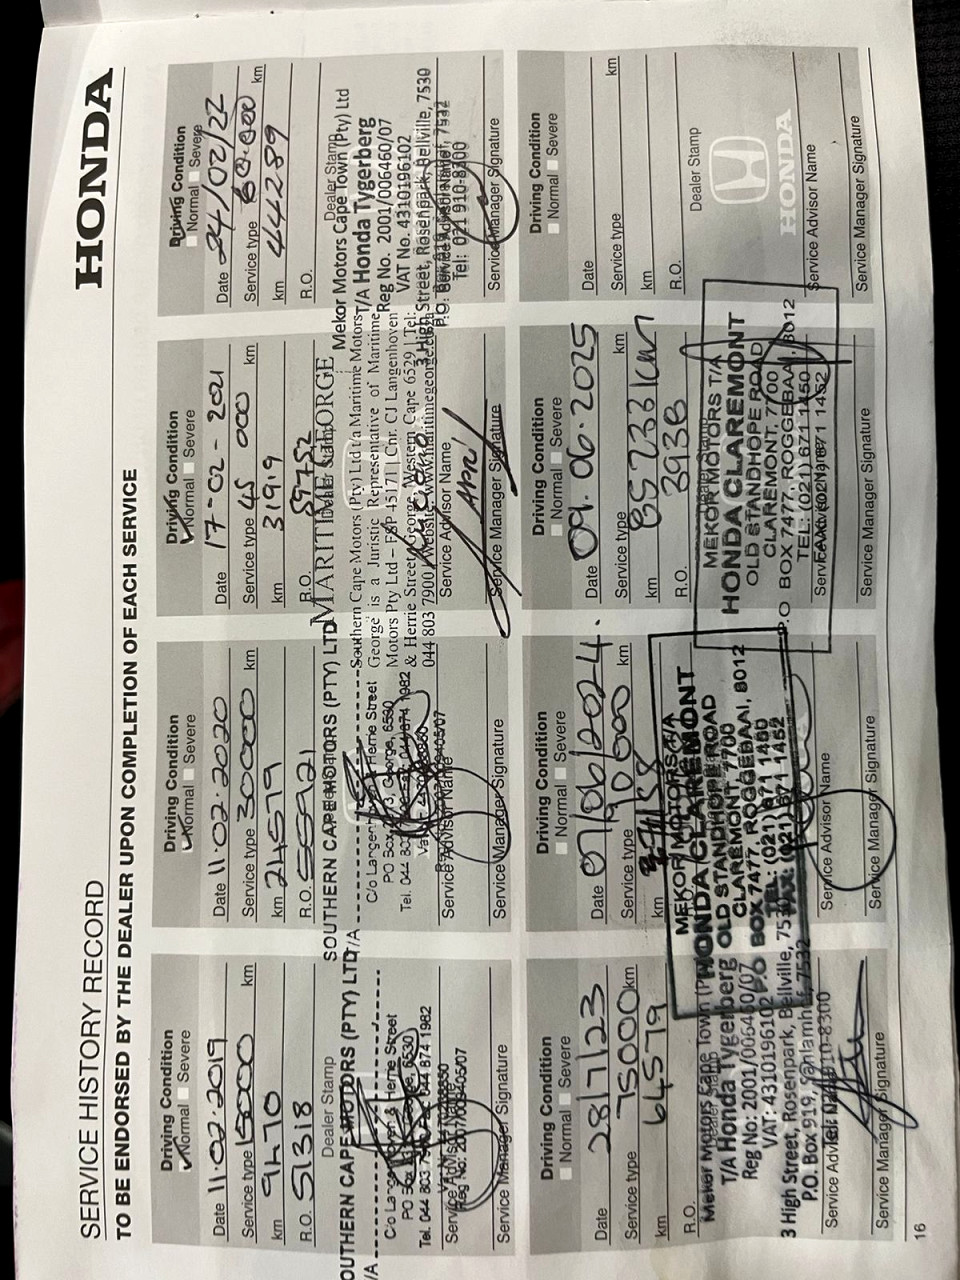 SERVICE HISTORY RECORD
HONDA
TO BE ENDORSED BY THE DEALER UPON COMPLETION OF EACH SERVICE
Driving Condition
Normal Severe
Date 11.02.2019
Service type 15000 km
km 9470
R.O. 51318
Dealer Stamp
SOUTHERN CAPE MOTORS (PTY) LTD
T/A
C/o Langenhoven & Herrie Street
PO Box George, 6530
Tel. 044 803 044 874 1982
Service Manager Signature
Driving Condition
Normal Severe
Date 11.02.2020
Service type 30000 km
km 24579
R.O. 55921
SOUTHERN CAPE MOTORS (PTY) LTD
T/A
C/o Langenhoven & Herrie Street
PO Box George, 6530
Tel. 044 803 044 874 1982
Service Advisor Name
Service Manager Signature
Driving Condition
Normal Severe
Date 17-02-2021
Service type 45 000 km
km 31919
R.O. 59752
MARITIME GEORGE
Southern Cape Motors (Pty) Ltd t/a Maritime Motors
George is a Juristic Representative of Maritime
Motors Pty Ltd – FSP 45171 | Cnr. CJ Langenhoven
& Herrie Street, George, Western Cape 6529 | Tel:
044 803 7900 | Website: www.maritimegeorge.co.za
Service Advisor Name
Service Manager Signature
Driving Condition
Normal Severe
Date 24/02/22
Service type 60.000 km
km 44289
R.O.
Dealer Stamp
Mekor Motors Cape Town (Pty) Ltd
T/A Honda Tygerberg
Reg No. 2001/006460/07
VAT No. 4310196102
3 High Street, Rosenpark, Bellville, 7530
Tel: 021 910-8300
Service Manager Signature
Driving Condition
Normal Severe
Date 28/7/23
Service type 75000 km
km 64579
R.O.
Mekor Motors Cape Town
T/A Honda Tygerberg
Reg No: 2001/006460/07
VAT: 4310196102
3 High Street, Rosenpark, Bellville, 7530
P.O. Box 919, Sanlamhof, 7532
Service Manager Signature
Driving Condition
Normal Severe
Date 07/06/2024.
Service type 90 000 km
km
R.O.
MEKOR MOTORS T/A
HONDA CLAREMONT
OLD STANDHOPE ROAD
CLAREMONT, 7700
P.O BOX 7477, ROGGEBAAI, 8012
TEL: (021) 671 1450
FAX: (021) 671 1452
Service Advisor Name
Service Manager Signature
Driving Condition
Normal Severe
Date 09.06.2025
Service type km
km 85733km
R.O. 3938
MEKOR MOTORS T/A
HONDA CLAREMONT
OLD STANDHOPE ROAD
CLAREMONT, 7700
P.O BOX 7477, ROGGEBAAI, 8012
TEL: (021) 671 1450
FAX: (021) 671 1452
Service Manager Signature
Driving Condition
Normal Severe
Date
Service type km
km
R.O.
Dealer Stamp
HONDA
Service Advisor Name
Service Manager Signature
16